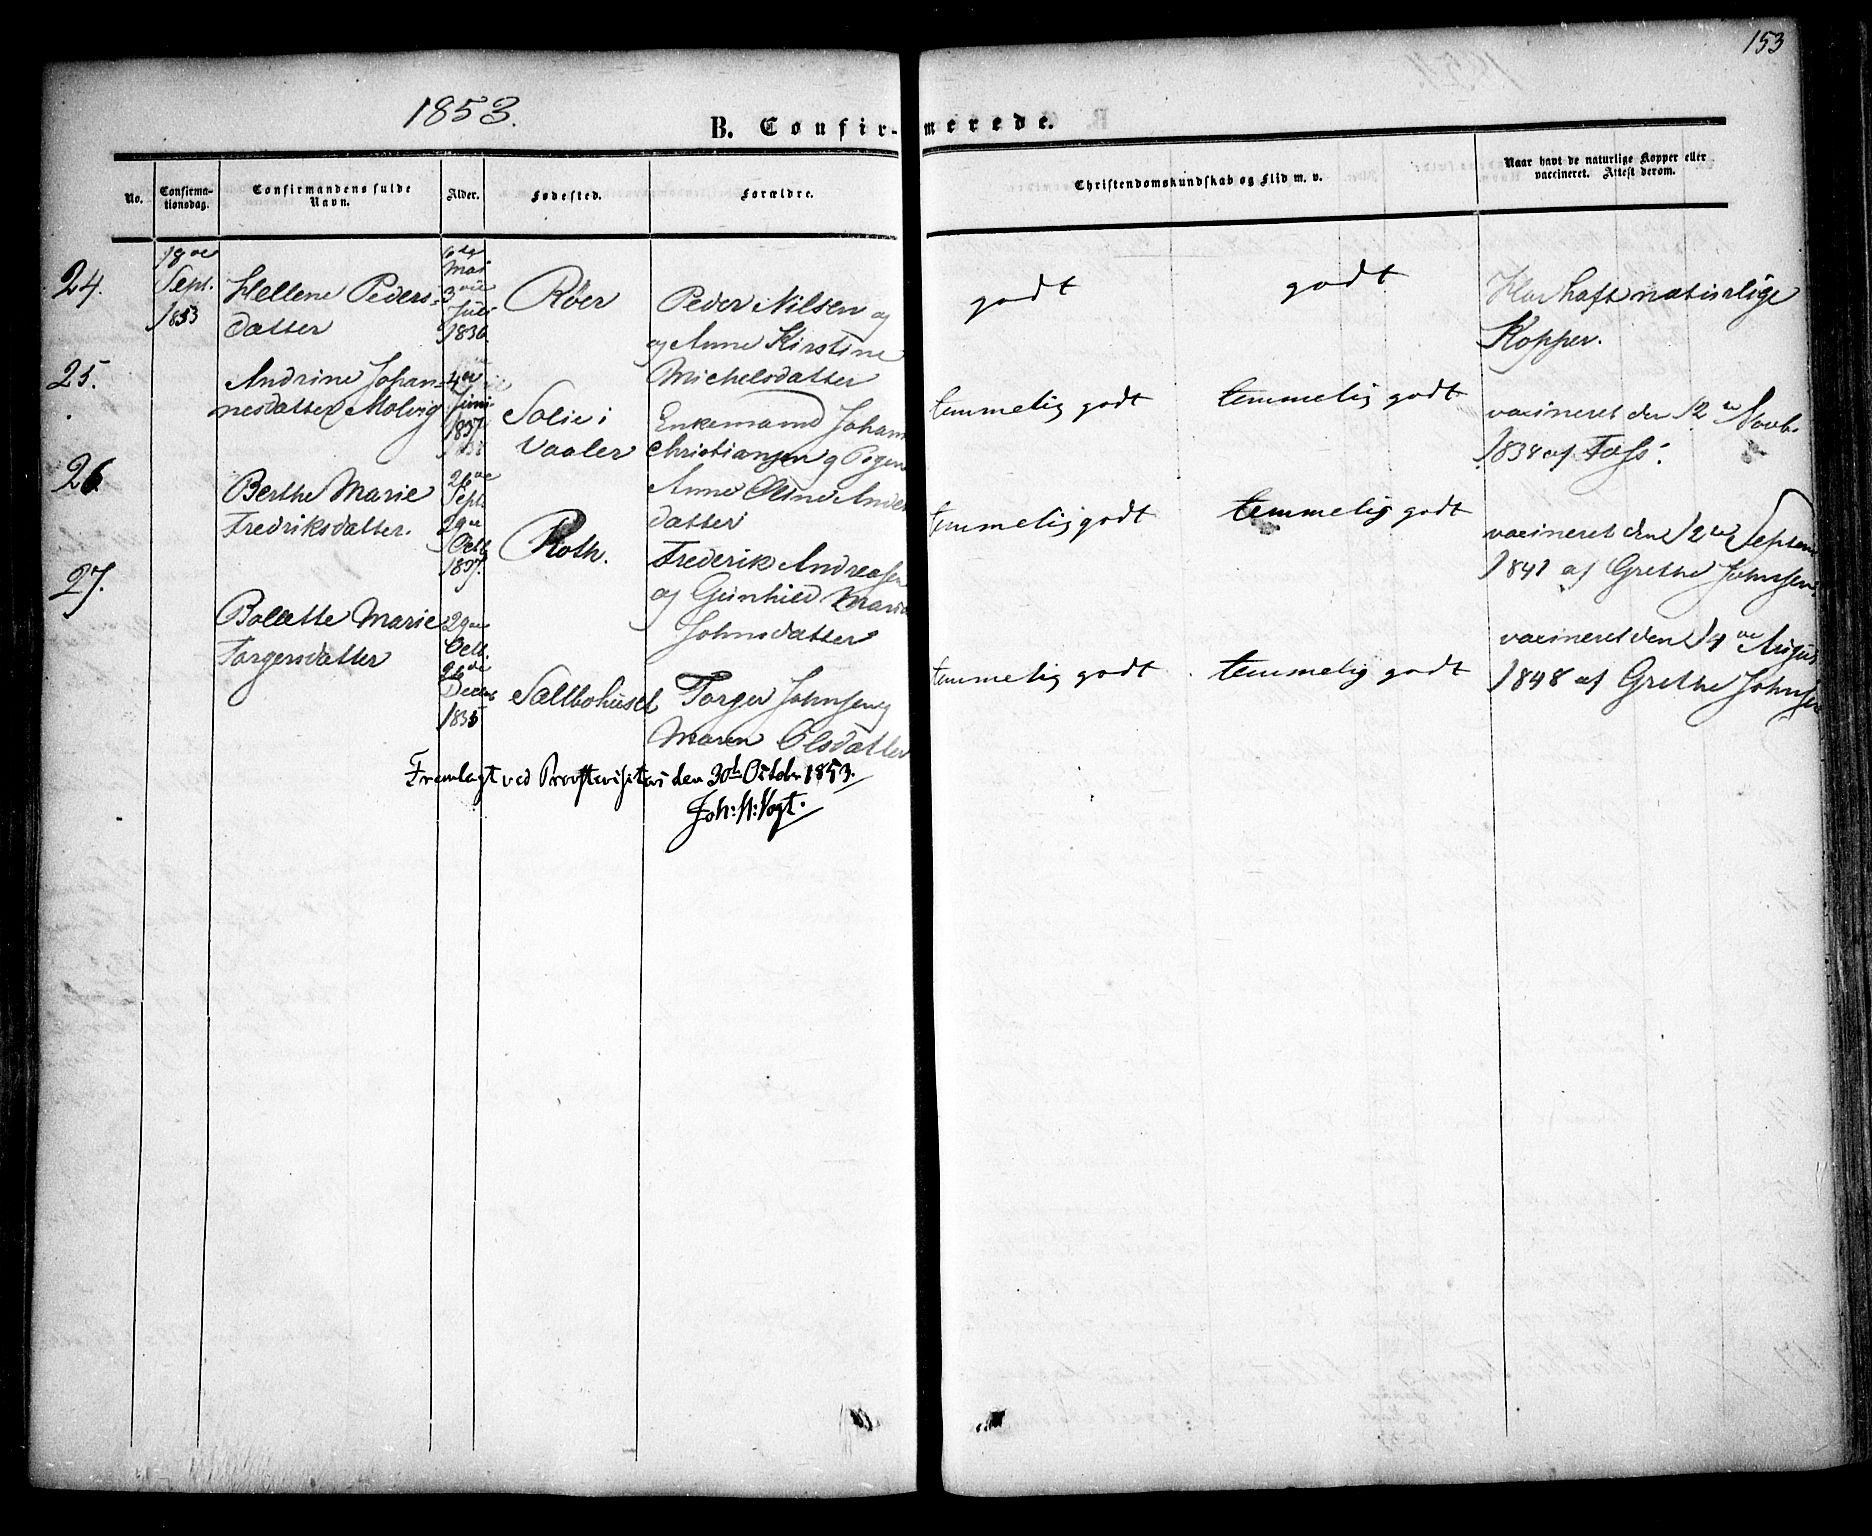 153
1853.
B. Confir-merede.
No.
Confirma-
tionsdag.
Confirmandens fulde
Navn.
Alder.
Fødested.
Forældre.
Christendomskundskab og Flid m. v.
Naar havt de naturlige Kopper eller
vaccineret. Attest derom.
24.
18de
Sept.
1853
Hellene Peders-
datter
6te
Mai
3die
Juli
1836.
Røer
Peder Nilsen og
og Anne Kirstine
Michelsdatter
godt
godt
Har haft naturlige
Kopper.
25.
Andrine Johan-
nesdatter Molvig
4de
Juni
1837.
Solie i
Vaaler
Enkemand Johann
Christiansen og Pigen
Anne Oline Anders
datter
temmelig godt
temmelig godt
vaccineret den 12te Novb.
1838 af Foss.
26.
Berthe Marie
Fredriksdatter.
26de
Sept.
29de
Octb
1837.
Roth.
Frederik Andreasen
og Gunhild Maria
Johnsdatter
temmelig godt
temmelig godt
vaccineret den 12te Septem
1841 af Grethe Johnsen
27.
Bolette Marie
Torgersdatter
29de
Octb.
26de
Decem
1835
Saltbohuset
Torger Johnsen og
Maren Olsdatter
temmelig godt
temmelig godt
vaccineret den 14de August
1848 af Grethe Johnsen
Fremlagt ved Provstevisitats den 30te October 1853.
Joh: H: Vogt.